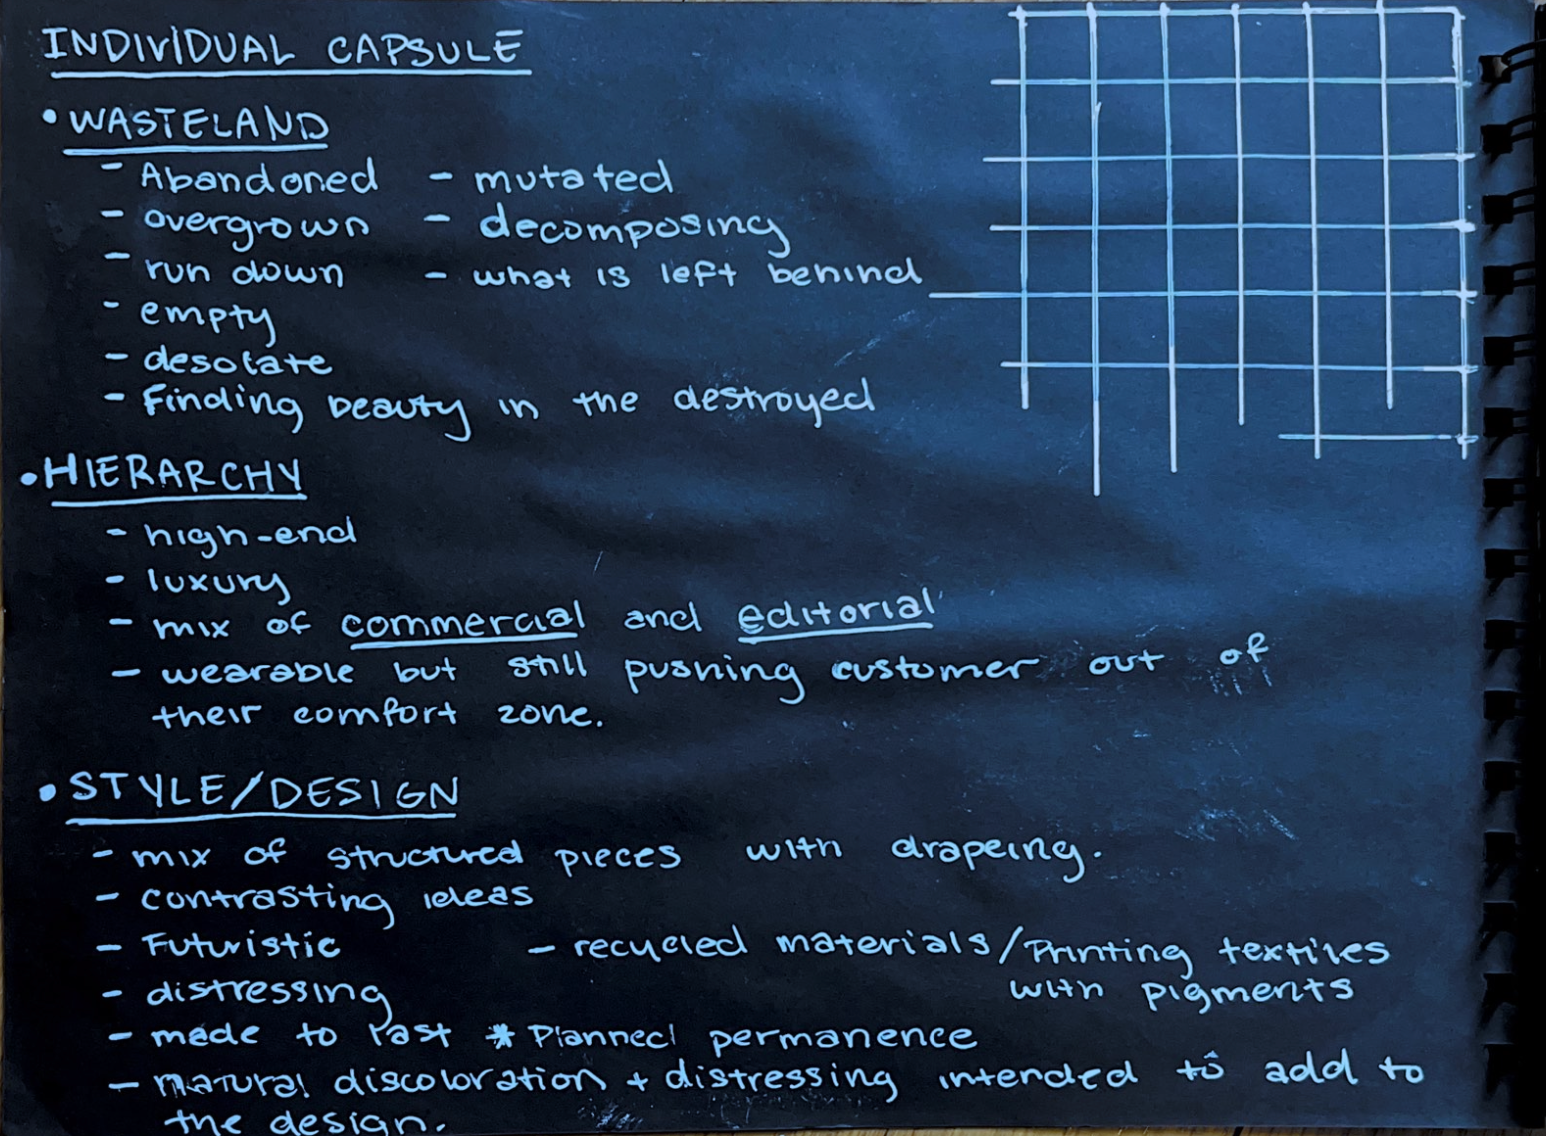 INDIVIDUAL CAPSULE
• WASTELAND
- Abandoned - mutated
- overgrown - decomposing
- run down - what is left behind
- empty
- desolate
- Finding beauty in the destroyed
• HIERARCHY
- high-end
- luxury
- mix of commercial and editorial
- wearable but still pushing customer out of
their comfort zone.
• STYLE/DESIGN
- mix of structured pieces with drapeing.
- contrasting ideas
- Futuristic - recycled materials/Printing textiles
with pigments
- distressing
- made to last * Planned permanence
- natural discoloration + distressing intended to add to
the design.